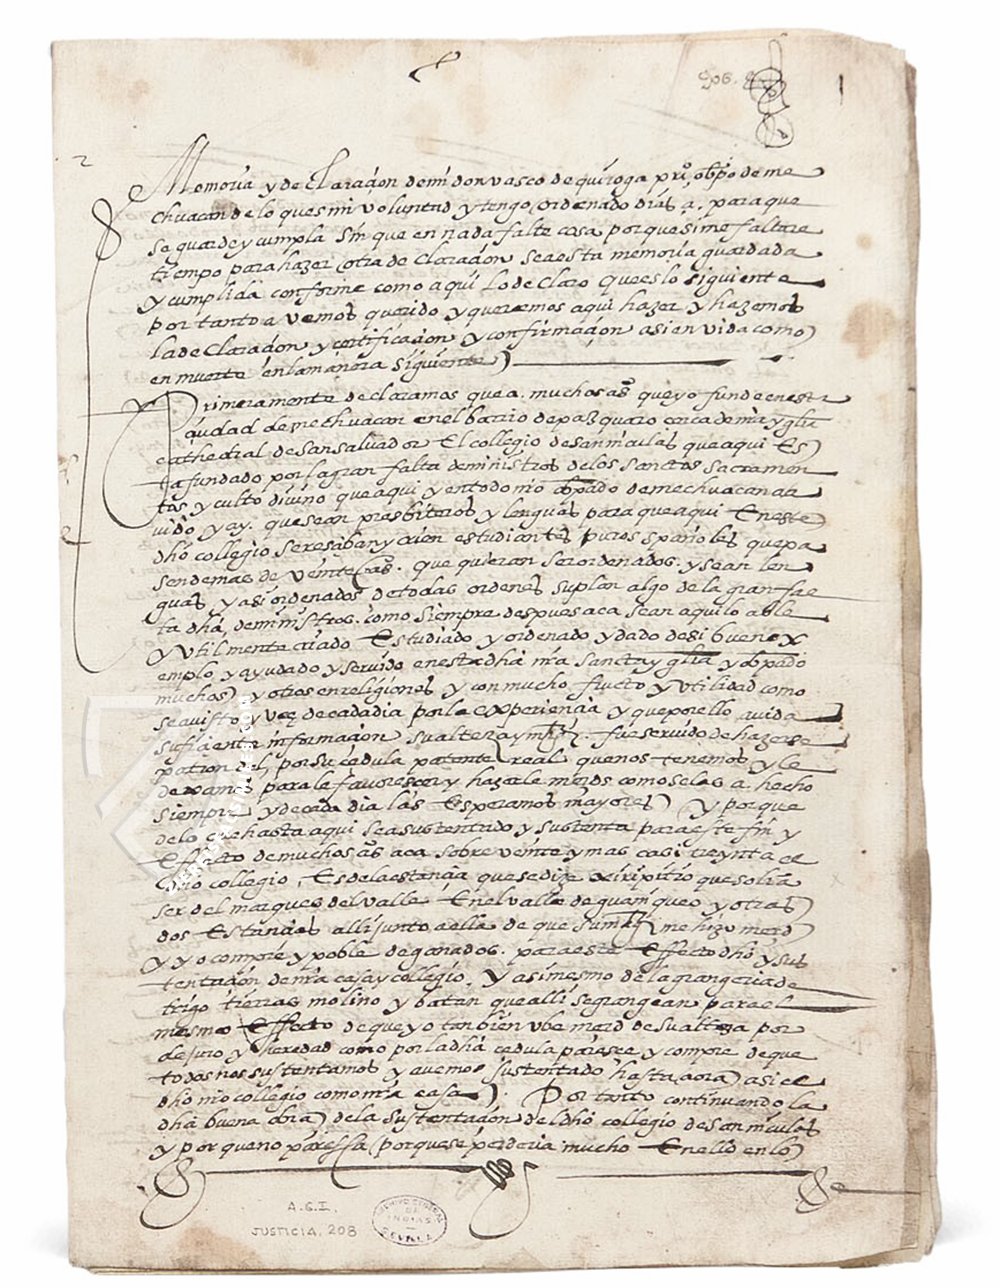 Memoria y declaraçion de mi don vasco de quiroga prio obpo de me
chuacan de lo ques mi voluntad y tengo ordenado dias a. para que
se guarde y cumpla sin que en nada falte cosa porque si me faltare
tiempo para hazer otra declaraçion sea esta memoria guardada
y cumplida conforme como aqui lo declaro que es lo siguiente
por tanto avemos querido y queremos aqui hazer y hazemos
la declaraçion y certificaçion y confirmaçion asi en vida como
en muerte en la manera siguiente
Primeramente declaramos que a. muchos as que yo funde en esta
çiudad de mechuacan en el barrio de pazquaro cerca de nra yglia
cathedral de san salvador El collegio de san niculas que aqui Es
ta fundado por la gran falta de ministros de los sanctos sacramen
tos y culto divino que aqui y en todo nro obpado de mechuacan a a
vido y ay. que sean presbiteros y lenguas para que aqui En este
dho collegio se resçiban y crien estudiantes puros españoles que pa
sen de mas de veinte as. que quieran ser ordenados. y sean len
guas y asi ordenados de todas ordenes suplan algo de la gran fal
ta dha de ministros. como siempre despues aca sean aqui loable
y vtilmente criado Estudiado y ordenado y dado de si buen ex
emplo y ayudado y servido en esta dha nra sancta yglia y obpado
muchos y otros en religiones y con mucho fructo y vtilidad como
se a visto y vee de cada dia por la experiençia y que por ello avida
sufiçiente informaçion su alteza y mgt. fue servido de hazerse
patron del, por su çedula patente real que nos tenemos y le
dexamos para le favoresçer y hazerle mrds como se las a. hecho
siempre y de cada dia las Esperamos mayores y porque
de lo que hasta aqui sea sustentado y sustenta para este fin y
Effecto de muchos as aca sobre veinte y mas casi treynta el
dho collegio. Es de la estançia que se dize xiripitio que solia
ser del marques del valle En el valle de guanqueo y otras
dos Estançias alli junto a ella de que su mgt me hizo mrd
y yo compre y poble de ganados. para este Effecto dho y sus
tentaçion de nra casa y collegio. y asimesmo de la grangeria de
trigo tierras molino y batan que alli se grangean para el
mesmo Effecto de que yo tanbien vbe mrd de su alteza por
de juro y heredad como por la dha çedula paresçe y compre de que
todos nos sustentamos y avemos sustentado hasta aora asi el
dho nro collegio como nra casa. Por tanto continuando la
dha buena obra de la sustentaçion del dho collegio de san niculas
y por que no paresca (porque se perderia mucho En ello en lo
A.G.I.
JUSTICIA, 208
ARCHIVO GENERAL
DE
INDIAS
SEVILLA